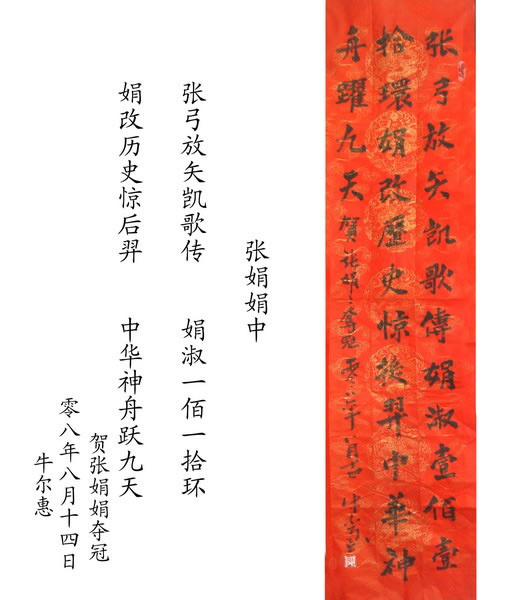 张弓放矢凯歌傳娟淑壹佰壹
拾環娟改歷史惊後羿中華神
舟躍九天 賀张娟
张娟娟中
张弓放矢凯歌传 娟淑一佰一拾环
娟改历史惊后羿 中华神舟跃九天
贺张娟娟夺冠
零八年八月十四日
牛尔惠